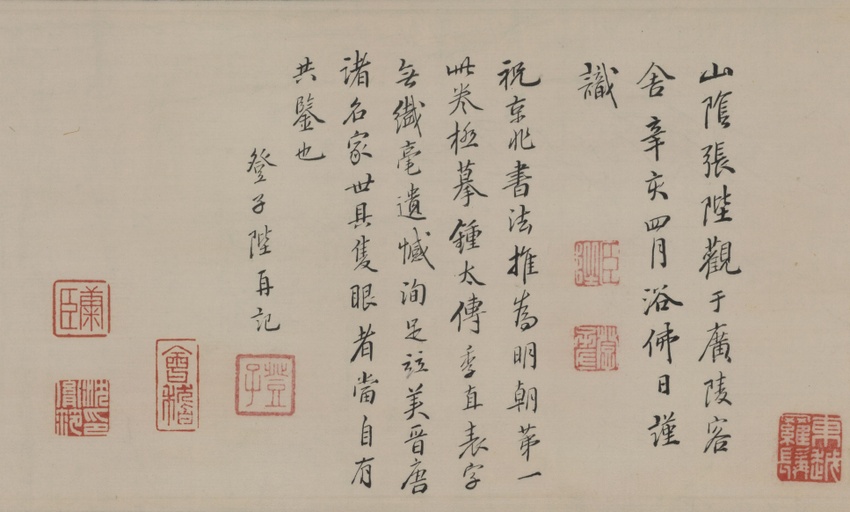 山陰張陛觀于廣陵客
舍辛亥四月浴佛日謹
識
祝京兆書法推為明朝第一
此卷極摹鍾太傅季直表字
無纖毫遺憾洵足玆美晉唐
諸名家世具隻眼者當自有
共鑒也
登子陛再記
登子
會稽